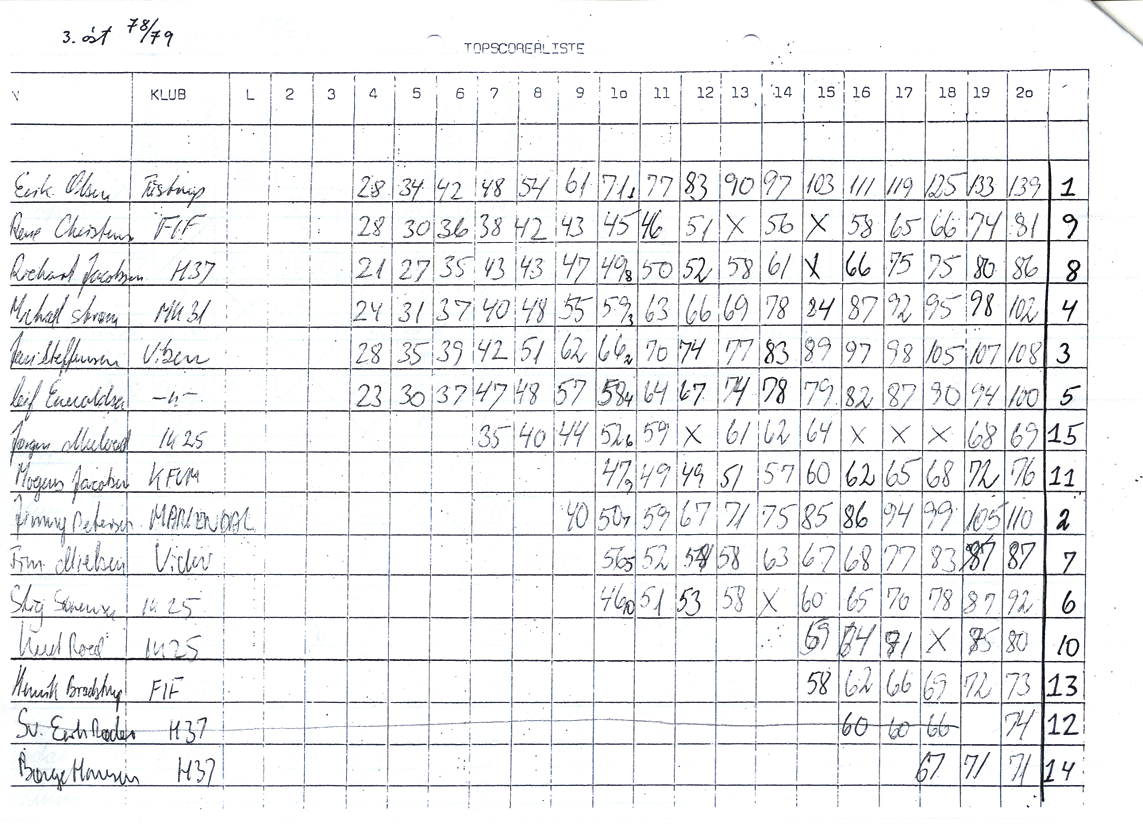 3. öst 78/79
TOPSCOREÅLISTE
KLUB L 2 3 4 5 6 7 8 9 10 11 12 13 14 15 16 17 18 19 20
Erik Olsen Tåstrup 28 34 42 48 54 61 71 1 77 83 90 97 103 111 119 125 133 139 1
Rene Christens FIF 28 30 36 38 42 43 45 46 51 X 56 X 58 65 66 74 81 9
Richard Jacobsen H37 21 27 35 43 43 47 49 8 50 52 58 61 X 66 75 75 80 86 8
Michael strøm MK31 24 31 37 40 48 55 59 3 63 66 69 78 84 87 92 95 98 102 4
Jan Steffensen Viben 28 35 39 42 51 62 66 2 70 74 77 83 89 97 98 105 107 108 3
Leif -"- 23 30 37 47 48 57 58 4 64 67 74 78 79 82 87 90 94 100 5
Jørgen IK 25 35 40 44 52 6 59 X 61 62 64 X X X 68 69 15
Mogens Jacobsen KFUM 47 9 49 49 51 57 60 62 65 68 72 76 11
Jimmy Petersen MARIENDAL 40 50 7 59 67 71 75 85 86 94 99 105 110 2
Finn Nielsen 56 5 52 58 63 67 68 77 83 87 87 7
Stig Sørensen IK 25 46 10 51 53 58 X 60 65 70 78 87 92 6
Knud IK 25 69 71 X 75 80 10
Henrik Bradstrup FIF 58 62 66 69 72 73 13
Sv. Erik H37 60 60 66 74 12
Børge Hansen H37 67 71 71 14